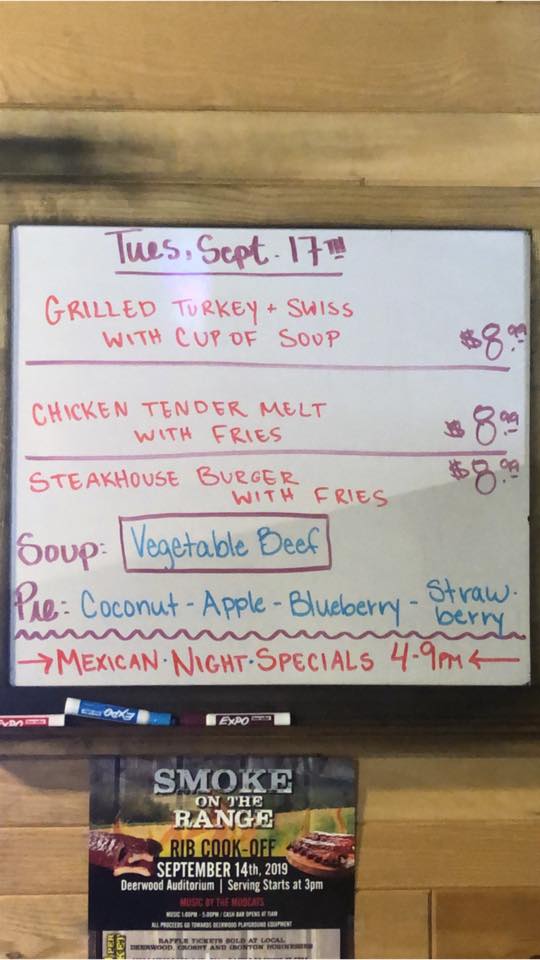 Tues, Sept. 17TH
GRILLED TURKEY + SWISS
WITH CUP OF SOUP $8.99
CHICKEN TENDER MELT
WITH FRIES $8.99
STEAKHOUSE BURGER $8.99
WITH FRIES
Soup: Vegetable Beef
Pie: Coconut - Apple - Blueberry - Straw-
berry
→MEXICAN·NIGHT·SPECIALS 4-9PM←
EXPO EXPO EXPO
SMOKE
ON THE
RANGE
RIB COOK-OFF
SEPTEMBER 14th, 2019
Deerwood Auditorium | Serving Starts at 3pm
MUSIC BY THE MUDCATS
MUSIC 1:00PM - 5:00PM / CASH BAR OPENS AT 11AM
ALL PROCEEDS GO TOWARDS DEERWOOD PLAYGROUND EQUIPMENT
RAFFLE TICKETS SOLD AT LOCAL
DEERWOOD, CROSBY AND IRONTON BUSINESSES